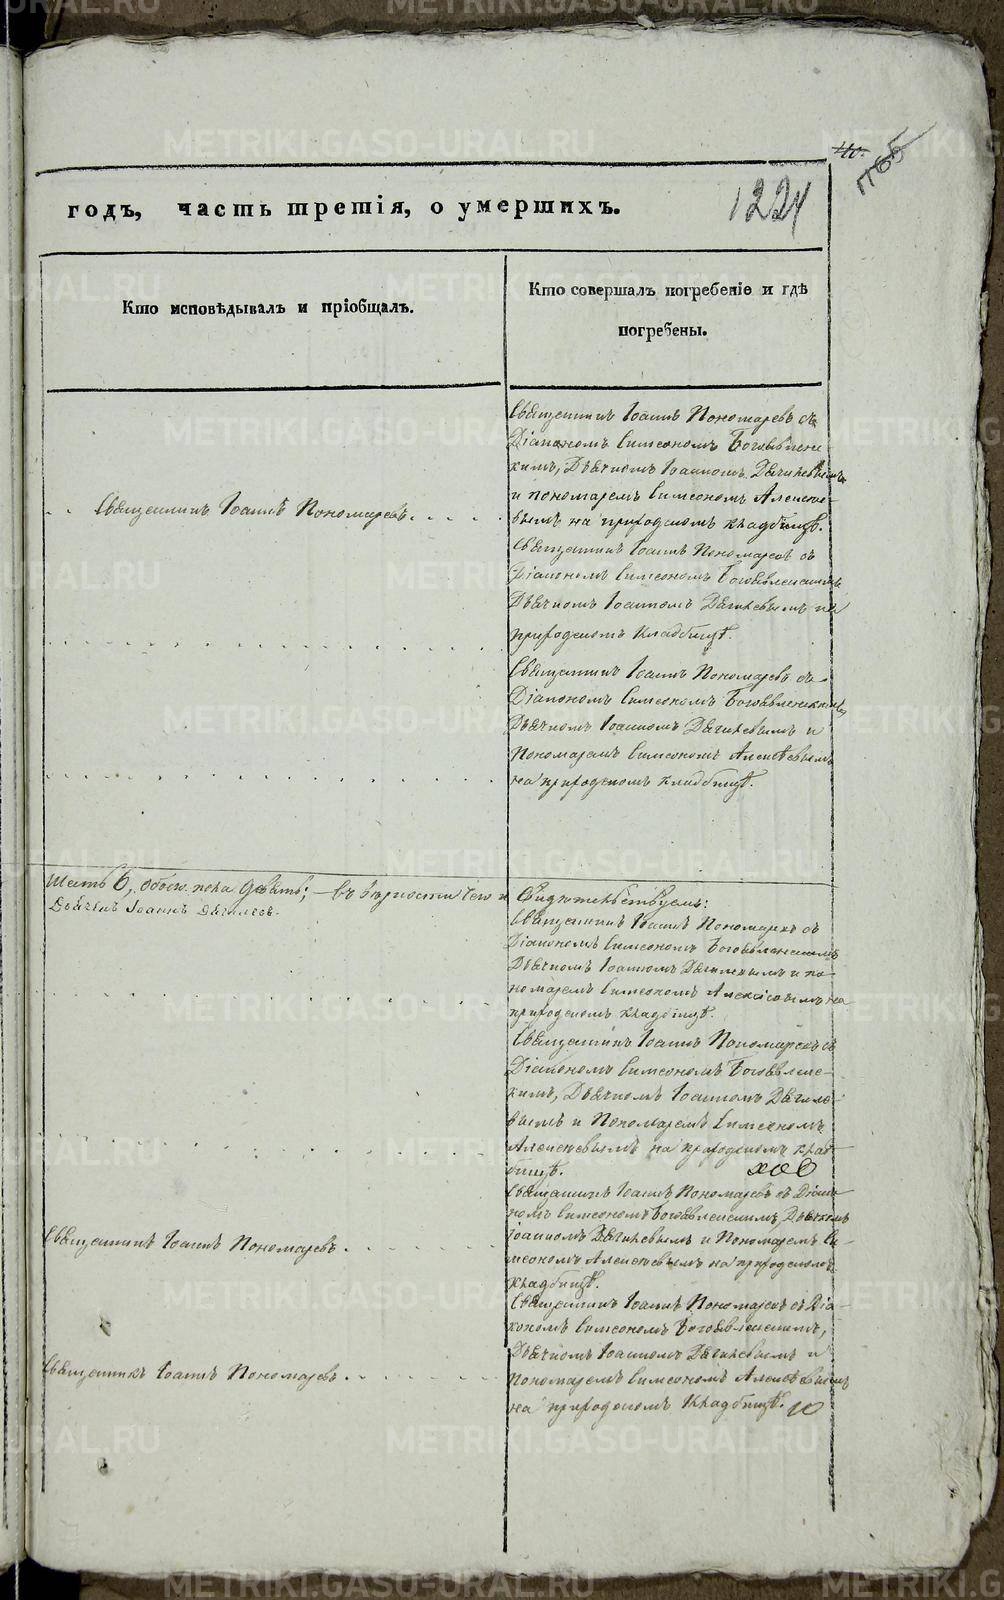 1765
1224
годъ, часть третія, о умершихъ.
Кто исповѣдывалъ и пріобщалъ.
Кто совершалъ погребеніе и гдѣ
погребены.
Священникъ Іоаннъ Пономаревъ съ
Діакономъ Симеономъ Богоявленс-
кимъ, Дьячкомъ Іоанномъ Дягилевымъ
и пономаремъ Симеономъ Алексѣе-
вымъ на приходскомъ кладбищѣ.
Священникъ Іоаннъ Пономаревъ
Священникъ Іоаннъ Пономаревъ съ
Діакономъ Симеономъ Богоявленскимъ
Дьячкомъ Іоанномъ Дягилевымъ на
приходскомъ кладбищѣ.
Священникъ Іоаннъ Пономаревъ съ
Діакономъ Симеономъ Богоявленскимъ,
Дьячкомъ Іоанномъ Дягилевымъ и
Пономаремъ Симеономъ Алексѣевымъ
на приходскомъ кладбищѣ.
Шесть 6, обоего пола девять; – въ вѣрности сего и Свидѣтельствуемъ:
Дьячекъ Іоаннъ Дягилевъ.
Священникъ Іоаннъ Пономаревъ съ
Діакономъ Симеономъ Богоявленскимъ
Дьячкомъ Іоанномъ Дягилевымъ и по-
номаремъ Симеономъ Алексѣевымъ на
приходскомъ кладбищѣ.
Священникъ Іоаннъ Пономаревъ съ
Діакономъ Симеономъ Богоявленс-
кимъ, Дьячкомъ Іоанномъ Дягиле-
вымъ и Пономаремъ Симеономъ
Алексѣевымъ на приходскомъ клад-
бищѣ.
Священникъ Іоаннъ Пономаревъ съ Діако-
номъ Симеономъ Богоявленскимъ, Дьячкомъ
Іоанномъ Дягилевымъ и Пономаремъ Си-
меономъ Алексѣевымъ на приходскомъ
кладбищѣ.
Священникъ Іоаннъ Пономаревъ
Священникъ Іоаннъ Пономаревъ съ Діа-
кономъ Симеономъ Богоявленскимъ,
Дьячкомъ Іоанномъ Дягилевымъ и
Пономаремъ Симеономъ Алексѣевымъ
на приходскомъ кладбищѣ.
Священникъ Іоаннъ Пономаревъ
METRIKI.GASO-URAL.RU